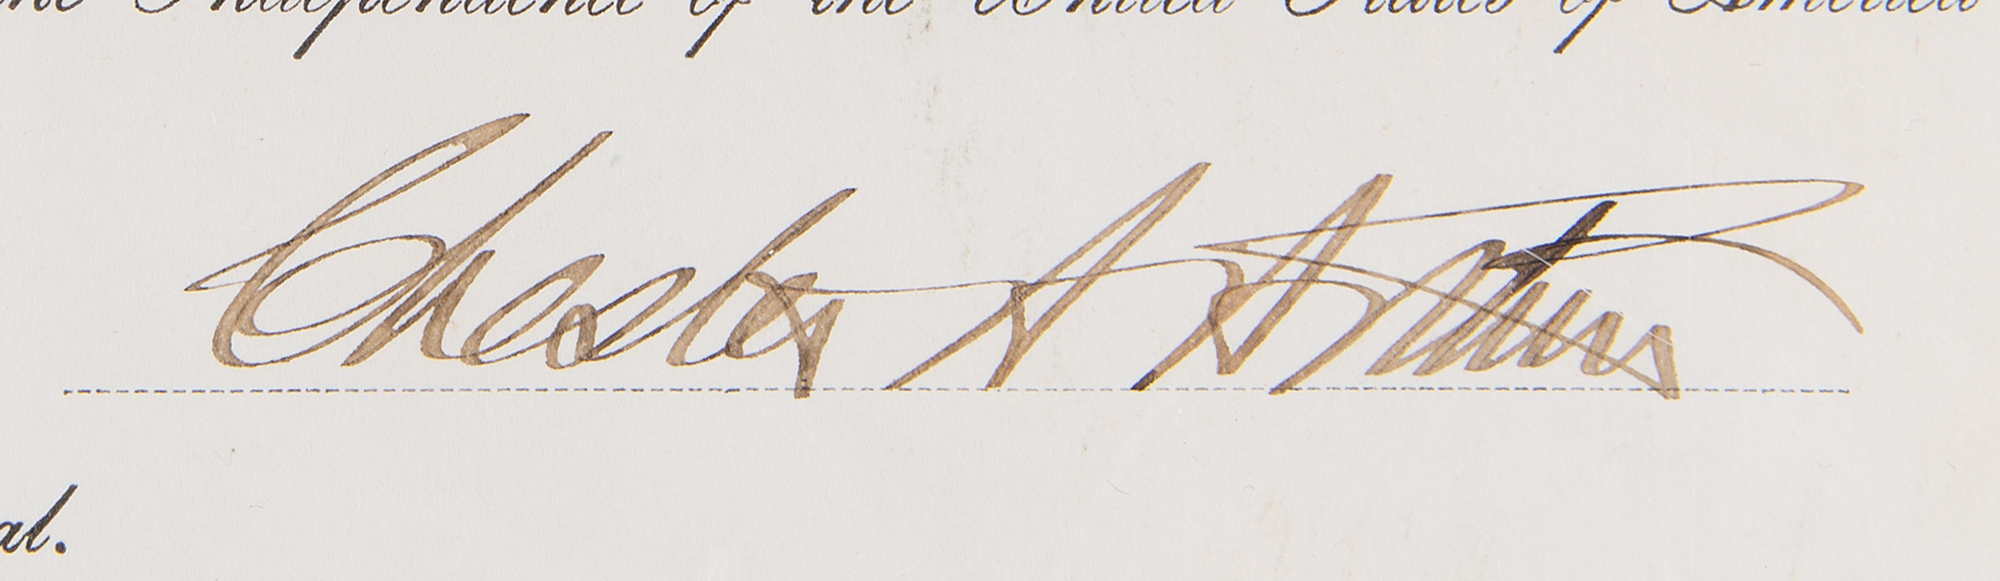 the Independence of the United States of America
Chester A Arthur
al.